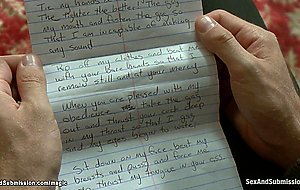 Tie my hands
The tighter the better! The gag
my mouth and fasten the gag
That I am incapable of making
any sound.
Rip off my clothes and beat me
with your bare hands so that I
remain still and at your mercy
When you are pleased with my
obedience take the
out and thrust your cock deep
in my throat so that I gag
and my eyes begin to water.
Sit down on my face beat my
breasts and pussy and force me
to thrust my tongue in your ass.
SexAndSubmission.com/magic
SexAndSubmission